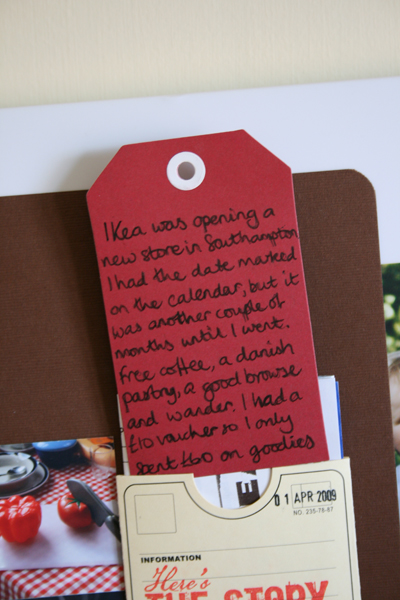 IKea was opening a
new store in Southampton
I had the date marked
on the calendar, but it
was another couple of
months until I went.
free coffee, a danish
pastry, a good browse
and wander. I had a
£10 voucher so I only
spent £60 on goodies
01 APR 2009
NO. 235-76-87
INFORMATION
Here's
THE STORY